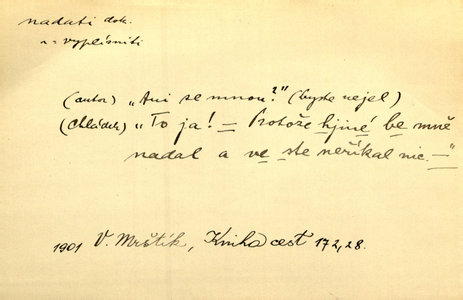 nadati dok.
n = vyplísniti
(autor) „Ani se mnou?" (byste nejel)
(Chládek) „To ja! — Protože hjiné be mně
nadal a ve ste neříkal nic. —"
1901 V. Mrštík, Kniha cest 172, 28.